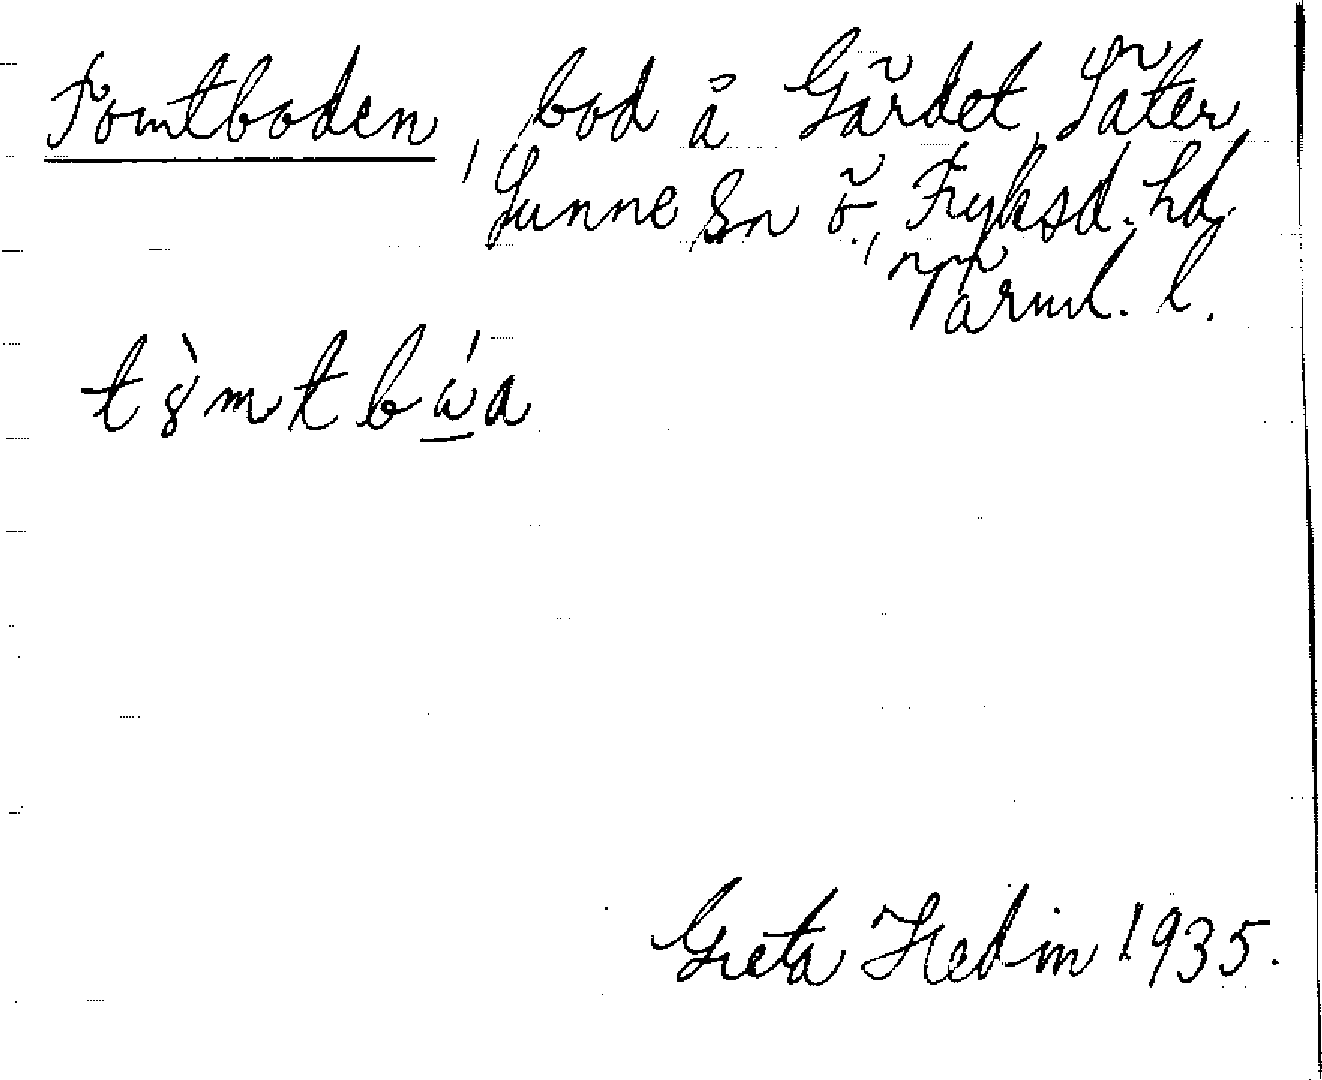 Tomtboden, bod å Gärdet, Säter,
Sunne Sn ö., Fryksd. hd,
Värml. l.
t8̀mtbúa
Greta Hedin 1935.